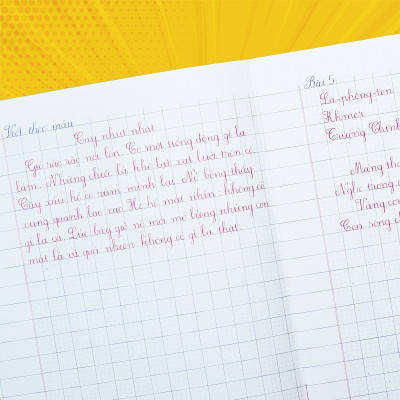 Viết theo mẫu
Cây nhút nhát
Gió rào rào nổi lên. Có một tiếng động gì lạ
lắm. Những chiếc lá khô lạt xạt lướt trên cỏ.
Cây xấu hổ co rúm mình lại. Nó bỗng thấy
xung quanh lao xao. He hé mắt nhìn: không có
gì lạ cả. Lúc bấy giờ, nó mới mở bừng những con
mắt lá và quả nhiên không có gì lạ thật.
Bài 5.
La-phông-ten
Khmer
Trường Chinh
Nghe trong
Vàng cơn